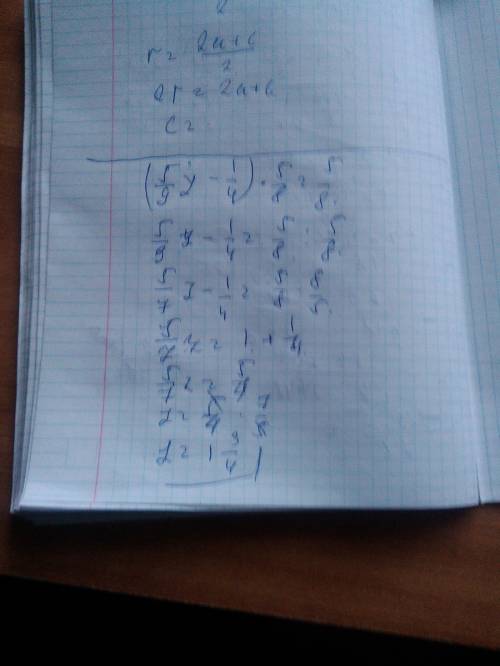 2
r = (2a+c)/2
2r = 2a+c
c =
(5/9 y - 1/4) · 5/8 = 5/8
5/9 y - 1/4 = 5/8 : 5/8
5/7 y - 1/4 = 5/8 · 8/5
5/7 y = 1 + 1/4
5/7 y = 5/4
y = 5/4 · 7/5
y = 1 3/4